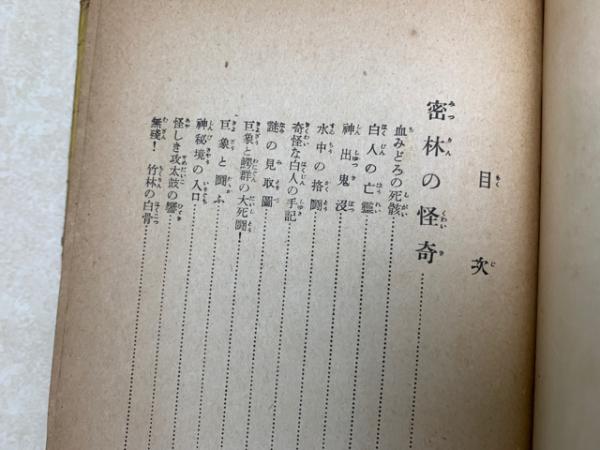 目次
密林の怪奇
血みどろの死骸
白人の亡霊
神出鬼没
水中の挌闘
奇怪な白人の手記
謎の見取圖
巨象と鰐群の大死闘！
巨象と闘ふ
神秘境の入口
怪しき攻太鼓の響
無殘！竹林の白骨